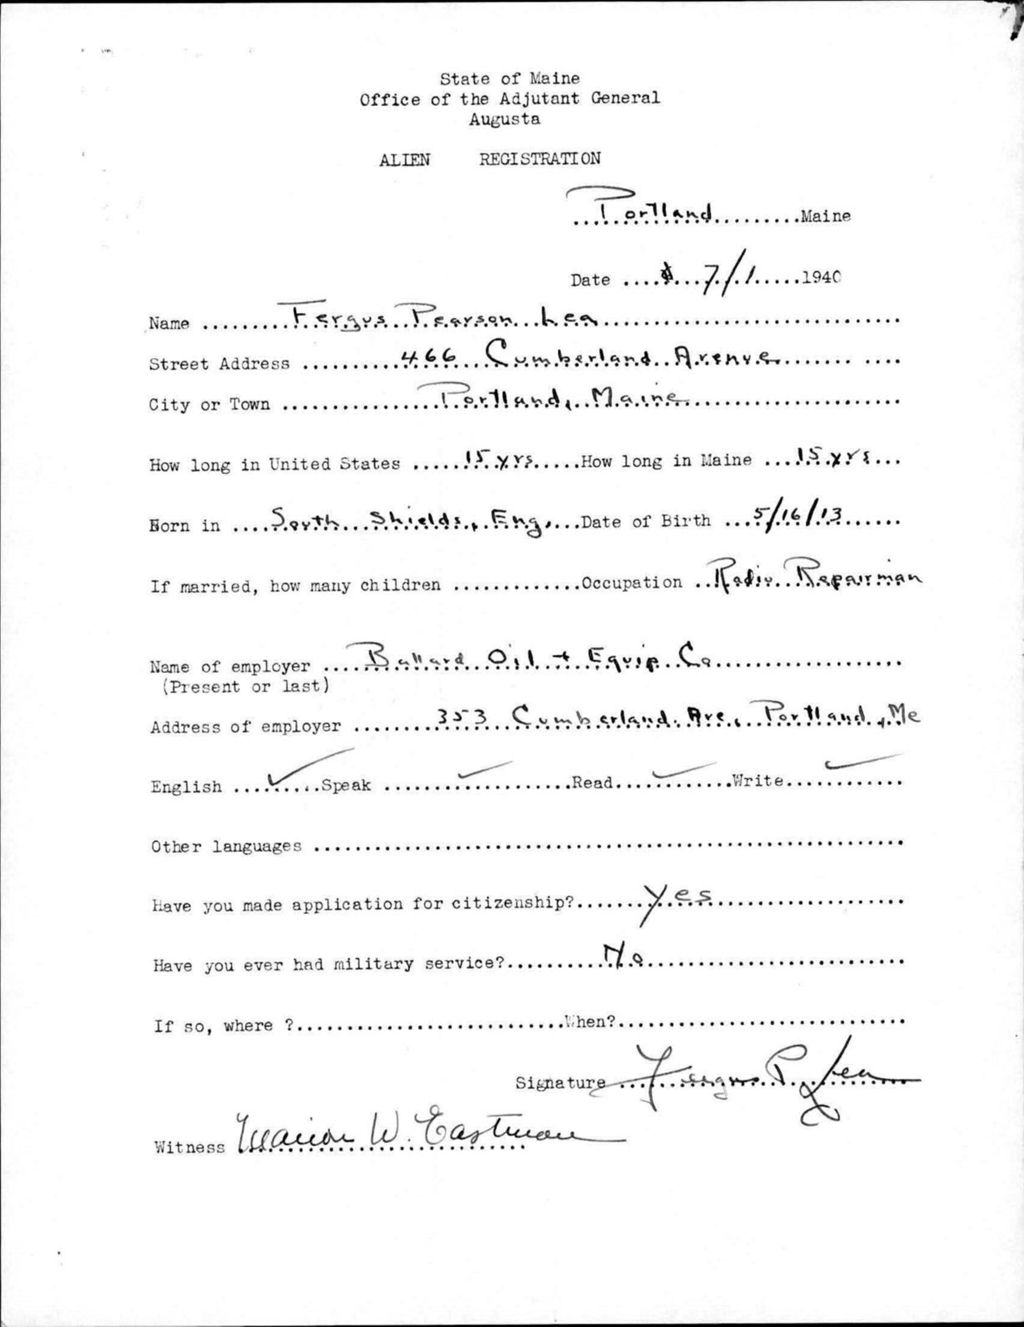 State of Maine
Office of the Adjutant General
Augusta
ALIEN REGISTRATION
...Portland.........Maine
Date .......7/1.....1940
Name .........Fergus Pearson Lea..............................
Street Address ..........466 Cumberland Avenue........ ....
City or Town ................Portland, Maine.......................
How long in United States .....15 yrs.....How long in Maine ...15 yrs...
Born in ....South Shields, Eng....Date of Birth ...5/16/13......
If married, how many children .............Occupation ..Radio Repairman
Name of employer ....Ballard Oil + Equip. Co...................
(Present or last)
Address of employer ........353 Cumberland Ave., Portland, Me
English ....✓.....Speak .........✓...........Read....✓........Write....✓.........
Other languages ......................................................
Have you made application for citizenship?.......Yes...................
Have you ever had military service?..........No..........................
If so, where ?..........................When?............................
Signature ...Fergus P. Lea.......
Witness Marion W. Eastman